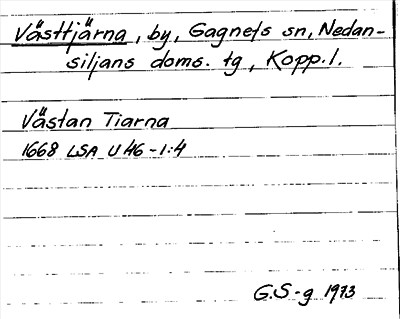 Västtjärna, by, Gagnefs sn, Nedan-
siljans doms. tg, Kopp. l.
Västan Tiarna
1668 LSA U 46-1:4
G.S-g 1973